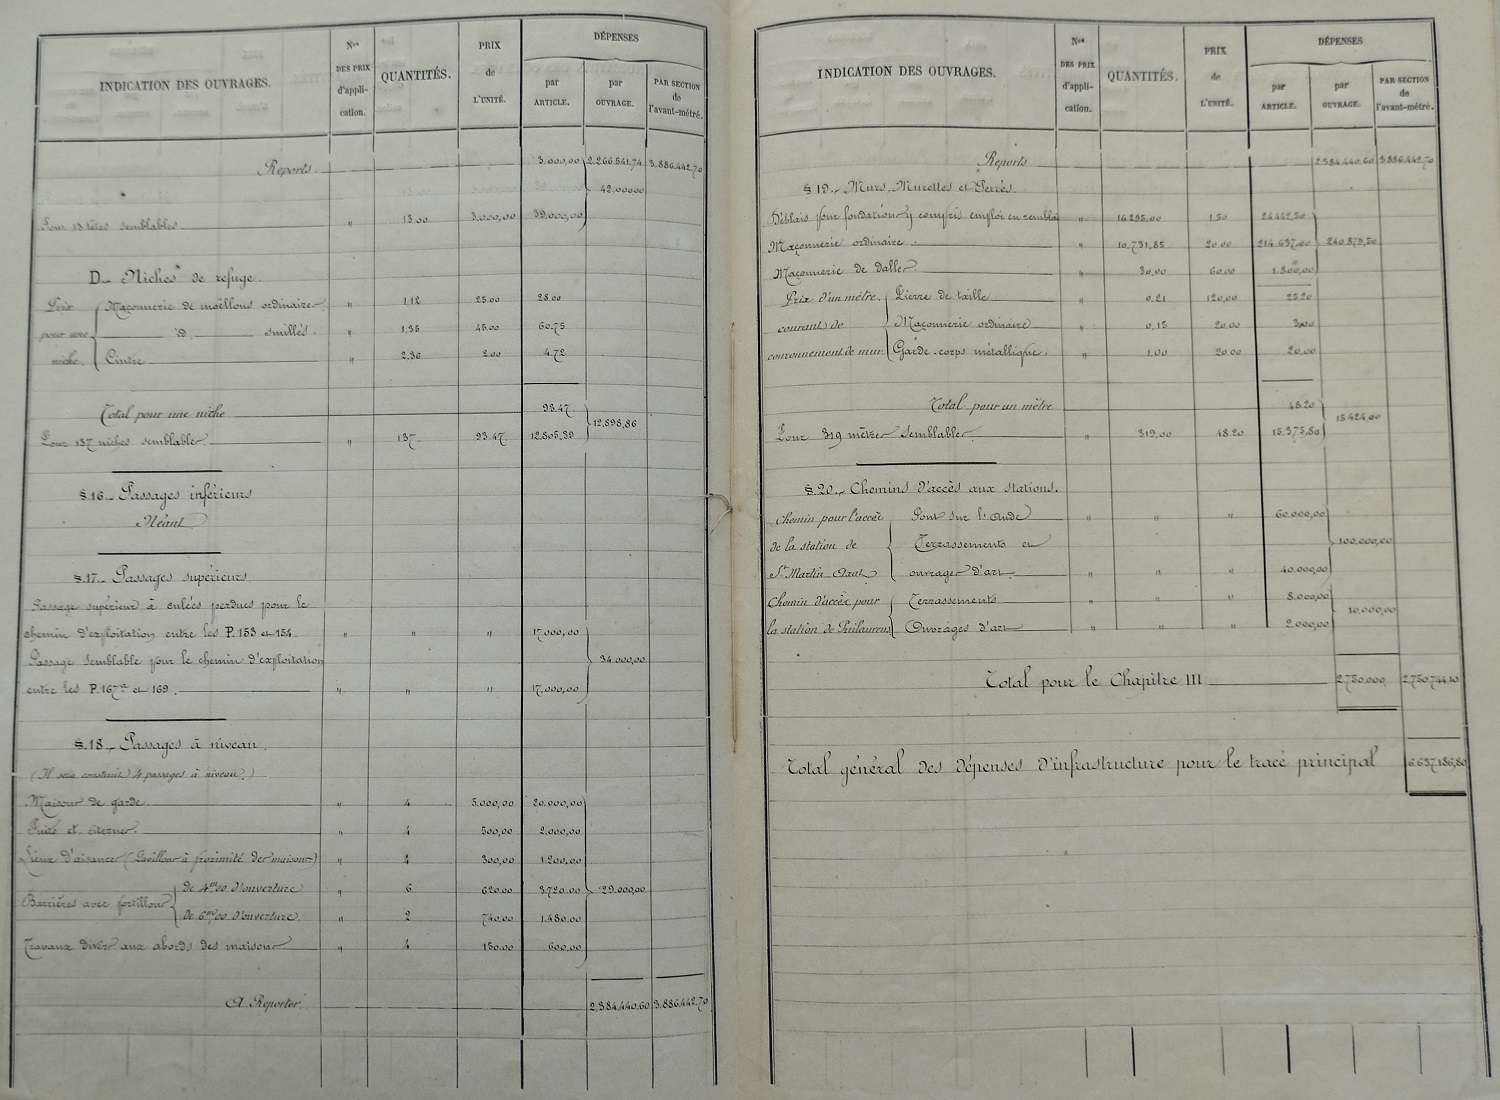 INDICATION DES OUVRAGES. Nos DES PRIX d'appli-cation. QUANTITÉS. PRIX de L'UNITÉ. DÉPENSES par ARTICLE. par OUVRAGE. PAR SECTION de l'avant-métré.
Reports 3.000,00 2.266.541,74 3.886.442,70
42.000,00
Pour 13 têtes semblables " 13.00 3.000,00 39.000,00
D. Niches de refuge.
Prix Maçonnerie de moëllons ordinaires " 1.12 25.00 28.00
pour une id. smillés " 1,35 45.00 60.75
niche Cintre " 2,36 2.00 4.72
Total pour une niche 93.47
12.898,86
Pour 137 niches semblables " 137 93.47 12.805,39
§.16._ Passages inférieurs
Néant
§.17._ Passages supérieurs
Passage supérieur à culées perdues pour le
chemin d'exploitation entre les P. 153 et 154. " " " 17.000,00
34.000,00
Passage semblable pour le chemin d'exploitation
entre les P. 167 et 169. " " " 17.000,00
§.18._ Passages à niveau.
(Il sera construit 4 passages à niveau.)
Maisons de garde " 4 5.000,00 20.000,00
Puits et citernes " 4 500,00 2.000,00
Lieux d'aisances (Pavillons à proximité des maisons) " 4 300,00 1.200.00
Barrières avec portillons de 4m00 d'ouverture " 6 620.00 3.720.00 29.000,00
de 6m,00 d'ouverture " 2 740.00 1.480.00
Travaux divers aux abords des maisons " 4 150.00 600.00
A Reporter 2.384.440,60 3.886.442,70
INDICATION DES OUVRAGES. Nos DES PRIX d'appli-cation. QUANTITÉS. PRIX de L'UNITÉ. DÉPENSES par ARTICLE. par OUVRAGE. PAR SECTION de l'avant-métré.
Reports 2.384.440.60 3.886.442,70
§ 19._ Murs, Murettes et Perrés.
Déblais pour fondations y compris emploi en remblai " 16.295,00 1.50 24.442,50
Maçonnerie ordinaire " 10.731,85 20.00 214.637,00 240.879,50
Maçonnerie de dalles " 30,00 60.00 1.800,00
Prix d'un mètre Pierre de taille " 0.21 120,00 25.20
courant de Maçonnerie ordinaire " 0,15 20.00 3,00
couronnement de mur Garde-corps métallique " 1.00 20.00 20,00
Total pour un mètre 48.20
15.424,00
Pour 319 mètres semblables " 319,00 48.20 15.375,80
§.20._ Chemins d'accès aux stations.
Chemin pour l'accès Pont sur l'Aude " " " 60.000,00
de la station de Terrassements et 100.000,00
St Martin Axat ouvrages d'art " " " 40.000,00
Chemin d'accès pour Terrassements " " " 8.000,00
10.000,00
la station de Puilaurens Ouvrages d'art " " " 2.000,00
Total pour le Chapitre III 2.750.000, 2.750.744,10
Total général des dépenses d'infrastructure pour le tracé principal 6.637.186,80